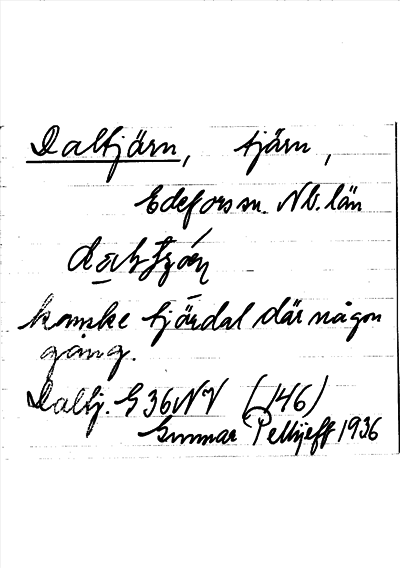 Daltjärn, tjärn,
Edefors sn. Nb. län
kanske tjärdal där någon
gång.
Daltj. G 36 NV (146)
Gunnar Pellijeff 1936